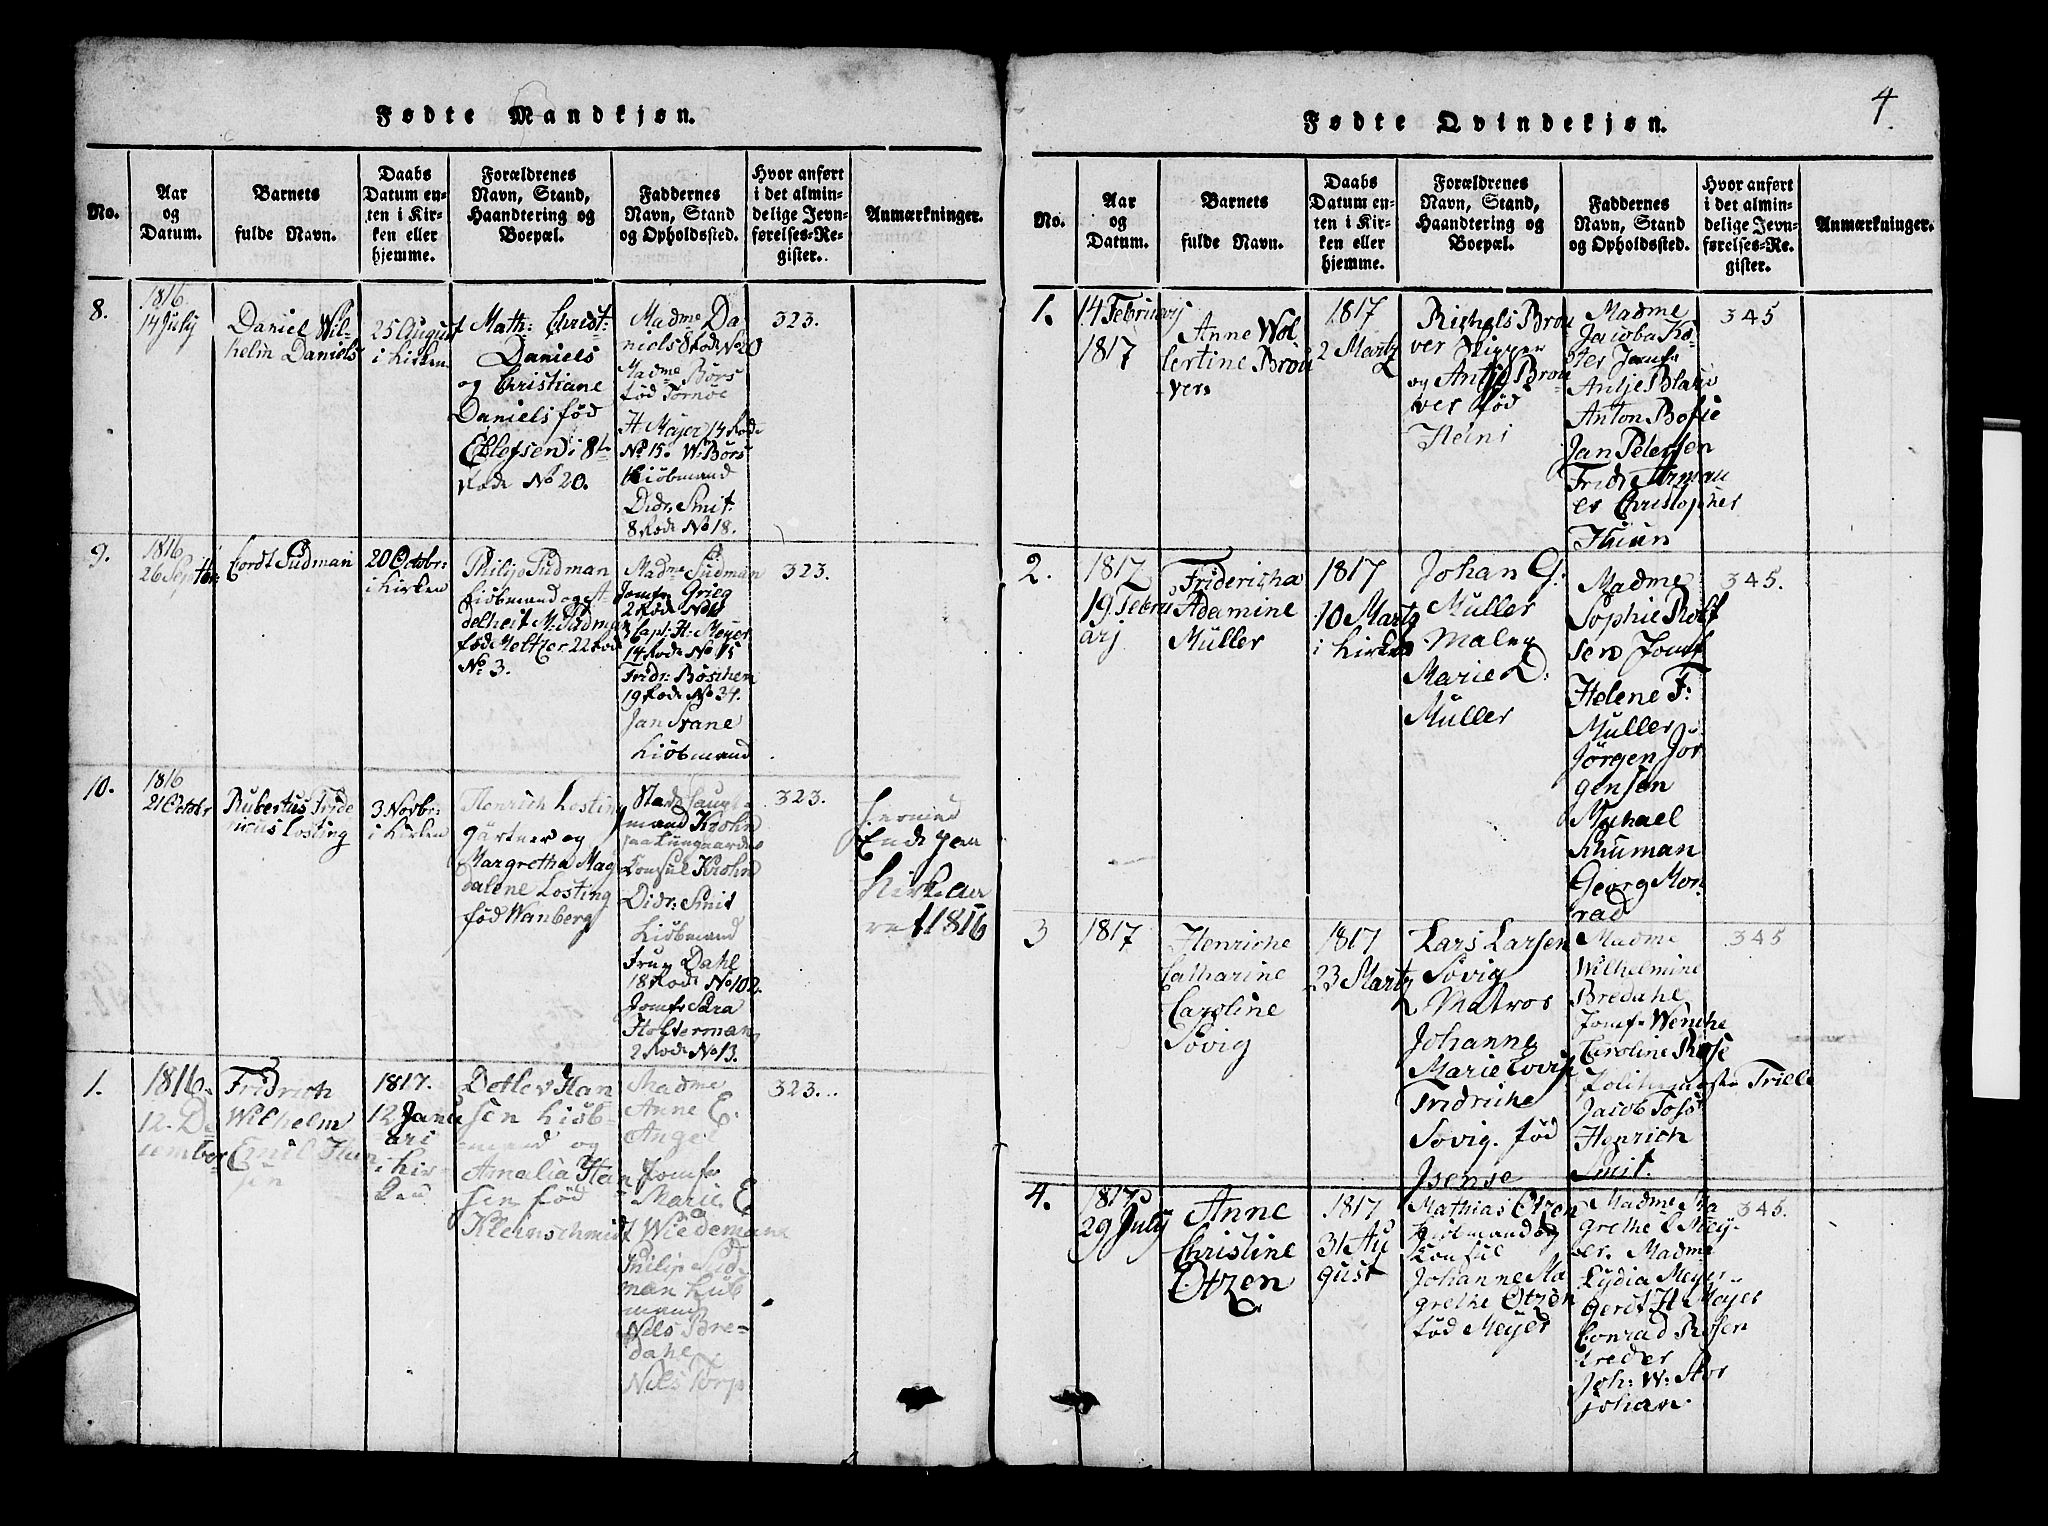 4
Fødte Mandkjøn.
No.
Aar
og
Datum.
Barnets
fulde Navn.
Daabs
Datum en-
ten i Kir-
ken eller
hjemme.
Forældrenes
Navn, Stand,
Haandtering og
Boepæl.
Faddernes
Navn, Stand
og Opholdssted.
Hvor anført
i det almin-
delige Jevn-
førelses-Re-
gister.
Anmærkninger.
8.
1816
14 July
Daniel Wil-
helm Daniels
25 August
i Kirken
Math: Christ-
Daniels
og Christiane
Daniels fød
Ellefsen i 8te
Rode No 20.
Madme Da
niels 8 Rode No 20
Madme Börs
fød Tornöe
H. Meyer 14 Rode
No 15. W. Börs
Kiöbmand
Didr. Smit
8 Rode No 18.
323.
9.
1816
26 Septbr:
Cordt Sudman
20 Octobr:
i Kirken
Philip Sudman
Kiöbmand og
delheit M: Sudman
fød Meltzer 22 Rode
No 3.
Madme Sudman
Jomfr Grieg
2 Rode No
Capt: H: Meyer
14 Rode No 15
Fridr: Böschen
19 Rode No 34.
Jan Svane
Kiöbmand
323.
10.
1816
21 Octobr
Rubertus Fride
ricus Losting
3 Novbr:
i Kirken
Henrich Losting
gärtner og
Margretha Mag
dalene Losting
fød Wanberg
Stads haupt-
mand Krohn
paa Lungaarden
Consul Krohn
Didr: Smit
Kiöbmand
Frue Dahl
18 Rode No 102.
Jomfr Sara
Holterman
2 Rode No 13.
323.
Hermed
Ende paa
Kirkeaa
ret 1816
1.
1816
12. De
cember
Fridrich
Wilhelm
Emil Han
sen
1817.
12 Janu
ari
i Kir-
ken
Detlev Han
sen Kiöb-
mand og
Amalia Han
sen fød
Kleinschmidt
Madme
Anne E.
Angel
Jomfr
Marie E
Wiedeman
Philip Sud-
man Kiöb
mand
Nils Bre-
dahl
Nils Torp
323.
Fødte Qvindekjøn.
No.
Aar
og
Datum.
Barnets
fulde Navn.
Daabs
Datum en-
ten i Kir-
ken eller
hjemme.
Forældrenes
Navn, Stand,
Haandtering og
Boepæl.
Faddernes
Navn, Stand
og Opholdssted.
Hvor anført
i det almin-
delige Jevn-
førelses-Re-
gister.
Anmærkninger.
1.
14 Februarj
1817
Anne Wol
lertine Brou
vers
1817
2 Martz
Richels Brou
ver Skipper
og Antje Brou
ver fød
Heins
Madme
Jacoba Kö-
ster Jomfr
Antje Blauv
Anton Bosie
Jan Petersen
Fridr: Arman
er Christopher
Thiun
345
2.
1817
19 Febru
arj
Fridericha
Adamine
Müller
1817
10 Martz
i Kirken
Johan G:
Müller
Maler
Marie D:
Müller
Madme
Sophie Rolf
sen Jomfr
Helene F:
Müller
Jörgen Jör
gensen
Michael
Schuman
Georg Mon
rad
345.
3
1817
Henriche
Catharine
Caroline
Sövig
1817
23 Martz
Lars Larsen
Sövig
Matros
Johanne
Marie
Fridriche
Sövig. fød
Jsense
Madme
Wilhelmine
Bredahl
Jomfr Wenche
Caroline Rose
Politiemester Trielle
Jacob Foss
Henrich
Smit.
345
4.
1817
29 July
Anne
Christine
Otzen
1817
31 Au
gust
Mathias Otzen
Kiöbmand og
Consul
Johanne Ma
grethe Otzen
fød Meyer
Madme Ma
grethe E Mey-
er. Madme
Lydia Meyer
Gerdt H Meyer
Conrad Rosen
treder
Joh: W: Stor
johan.
345.